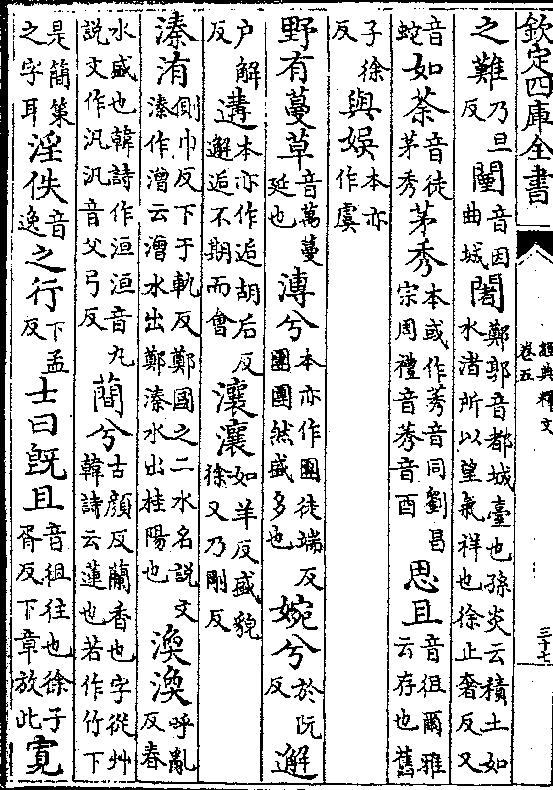 欽定四庫全書
經典釋文
卷五
三十七
之難乃旦反闉音因曲城闍鄭郭音都城臺也孫炎云積土如水渚所以望氣祥也徐止奢反又
音蛇如荼音徒茅秀茅秀本或作莠音同劉昌宗周禮音莠音酉思且音徂爾雅云存也舊
子徐反與娛本亦作虞
野有蔓草音萬蔓延也漙兮本亦作團徒端反團團然盛多也婉兮於阮反邂
户解反遘本亦作逅胡后反邂逅不期而會瀼瀼如羊反盛貌徐又乃剛反
溱洧側巾反下于軌反鄭國之二水名説文溱作潧云潧水出鄭溱水出桂陽也渙渙呼亂反春
水盛也韓詩作洹洹音丸説文作汎汎音父弓反蕑兮古顔反蘭香也字從艸韓詩云蓮也若作竹下
是簡策之字耳淫佚音逸之行下孟反士曰既且音徂往也徐子胥反下章放此寬